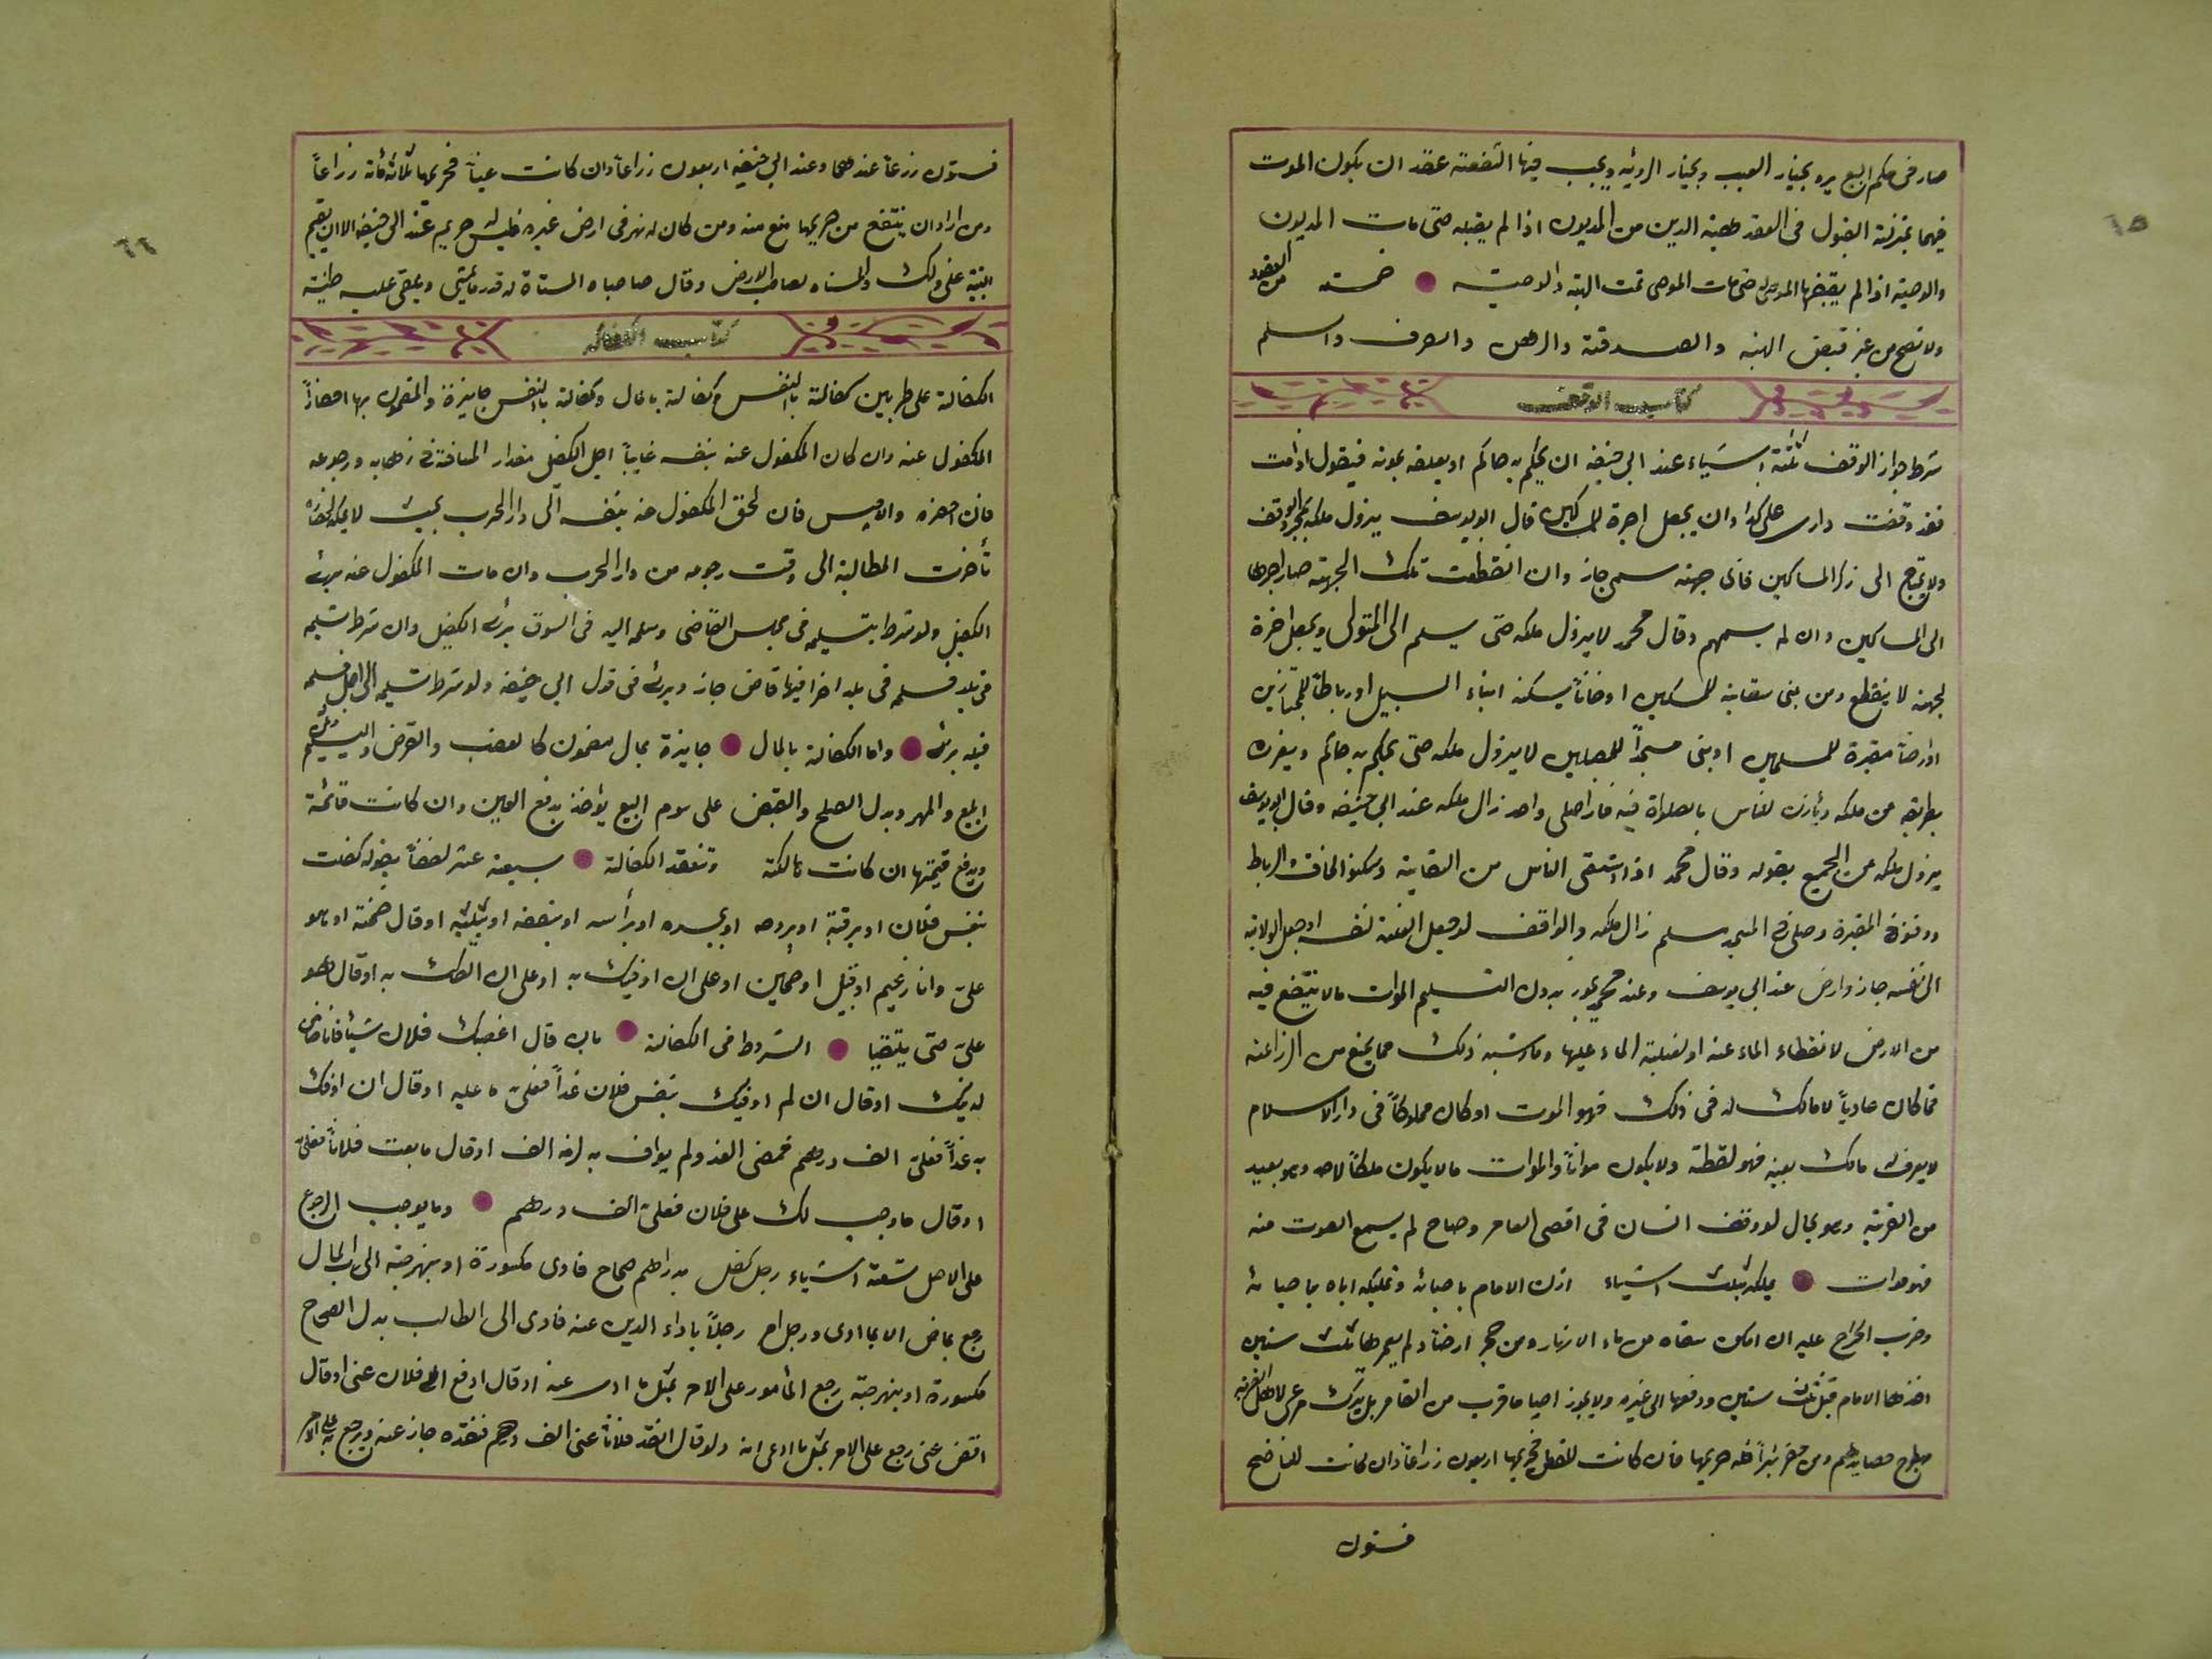 ٦٥
صار فى حكم البيع يرد بخيار العيب وبخيار الرؤيه ويجب فيها الشفعة عقد ان يكون الموت
فيهما بمنزلة القبول فى العقد هبة الدين من المديون اذا لم يقبله حتى مات المديون
والوصية اذا لم يقبضها الموصى له حتى مات الموصى تمت الهبة والوصية خمسة من العقود
ولا تصح من غير قبض الهبه والصدقة والرهن والصرف والسلم
كتاب الوقف
شرط جواز الوقف ثلثة اشياء عند ابي حنيفه ان يحكم به حاكم او يعلقه بموته فيقول اذا مت
فقد وقفت دارى على كذا وان يجعل اجرة للمساكين قال ابو يوسف يزول ملكه بمجرد الوقف
ولا يحتاج الى ذكر المساكين فاى جهة سمى جاز وان انقطعت تلك الجهة صار اجرها
الى المساكين وان لم يسمهم وقال محمد لا يزول ملكه حتى يسلم الى المتولى ويجعل اخرة
لجهة لا ينقطع ومن بنى سقاية للمسلمين او خاناً يسكنه ابناء السبيل او رباطاً للمجتازين
او ارضاً مقبرة للمسلمين او بنى مسجداً للمصلين لا يزول ملكه حتى يحكم به حاكم ويفرزه
بطريقه من ملكه ويأذن للناس بالصلاة فيه فاذا صلى واحد زال ملكه عند ابي حنيفه وقال ابو يوسف
يزول ملكه عن الجميع بقوله وقال محمد اذا استقى الناس من السقاية وسكنوا الخان والرباط
ودفنو فى المقبرة وصلى فى المسجد سلم زال ملكه والواقف لو جعل الغلة لنفسه او جعل الولاية
الى نفسه جاز وارض عند ابي يوسف وعند محمد يجوز بدون التسليم الموات مالا ينتفع فيه
من الارض لانقطاء الماء عنه او لغلبة الماء عليها وما اشبه ذلك مما يمنع من الزراعة
فما كان عادياً لا مالك له فى ذلك فهو الموت او كان مملوكاً فى دار الاسلام
لا يعرف له مالك بعينه فهو لقطة ولا يكون مواتاً والموات مالا يكون ملكاً لاحد وهو بعيد
من القرية وهو بحال لو وقف انسان فى اقصى العامر وصاح لم يسمع الصوت منه
فهو موات يملكه بثلث اشياء اذن الامام باحيائه وتمليكه اياه باحيائه
وضرب الخراج عليه ان امكن سقاه من ماء الانهار ومن حجر ارضاً ولم يعمرها ثلث سنين
اخذها الامام قبل ثلث سنين ودفعها الى غيره ولا يجوز احيا ما قرب من العامر بل يترك مرعى لاهل القرية
ومطرح حصايدهم ومن حفر بئراً فله حريمها فان كانت للعطن فحريمها اربعون زراعاً وان كانت للناضح
فستون
٦٦
فستون زرعاً عندهما وعند ابي حنيفه اربعون زراعاً وان كانت عيناً فحريمها ثلاثمائة زراعاً
ومن اراد ان ينتفع من حريمها منع منه ومن كان له نهر فى ارض غيره فليس له حريم عند ابي حنيفه الا ان يقيم
البينة على ذلك والمسناه لصاحب الارض وقال صاحباه المسناة له قدر ما يمشى ويلقى عليه طينة
كتاب الكفاله
الكفالة على ضربين كفالة بالنفس وكفالة بالمال وكفالة بالنفس جايزة والمضمون بها احضار
المكفول عنه وان كان المكفول عنه بنفسه غايباً اجل الكفيل مقدار المسافة فى ذهابه ورجوعه
فان احضره والا حبس فان لحق المكفول عنه بنفسه الى دار الحرب بحيث لا يمكنه احضاره
تأخرت المطالبة الى وقت رجوعه من دار الحرب وان مات المكفول عنه برئ
الكفيل ولو شرط بتسليمه فى مجلس القاضى وسلمه اليه فى السوق برئ الكفيل وان شرط تسليمه
فى بلد فسلمه فى بلد اخر فيها قاض جاز وبرئ فى قول ابي حنيفه ولو شرط تسليمه الى اجل فسلمه
قبله برئ واما الكفالة بالمال جايزة بمال مضمون كالغصب والقرض والتسليم
المبيع والمهر وبدل الصلح والقبض على سوم البيع يؤاخذ بدفع العين وان كانت قائمة
ويدفع قيمتها ان كانت هالكة وتنعقد الكفالة سبعة عشر لفظاً بقوله كفلت
بنفس فلان او برقبة او بروحه او بجسده او برأسه او بنصفه او بثلثه او قال ضمنته او هو
على وانا زعيم او قبيل او ضمين او على ان اوفيك به او على ان القاك به او قال هو
على حتى يلتقيا الشروط فى الكفالة بان قال اغصبك فلان شيئاً فانا ضامن
لديك او قال ان لم اوفيك بنفس فلان غداً فعلى ما عليه او قال ان اوفك
به غداً فعلى الف درهم فمضى الغد ولم يواف به لزمه الف او قال ما بعت فلاناً فعلى
او قال ما وجب لك على فلان فعلى الف درهم وما يوجب الرجوع
على الاصل ستة اشياء رجل كفل بدراهم صحاح فادى مكسورة او بنهرجة الى رب المال
رجع بما ضمن الا بما ادى ورجل امر رجلاً باداء الدين عنه فادى الى الطالب بدل الصحاح
مكسورة او بنهرجة رجع المأمور على الامر بمثل ما ادى عنه او قال ادفع الى فلان عنى او قال
اقض عنى رجع على الامر بمثل ما ادى انه ولو قال انقد فلاناً عنى الف درهم فنقده جاز عنه ويرجع به على الامر